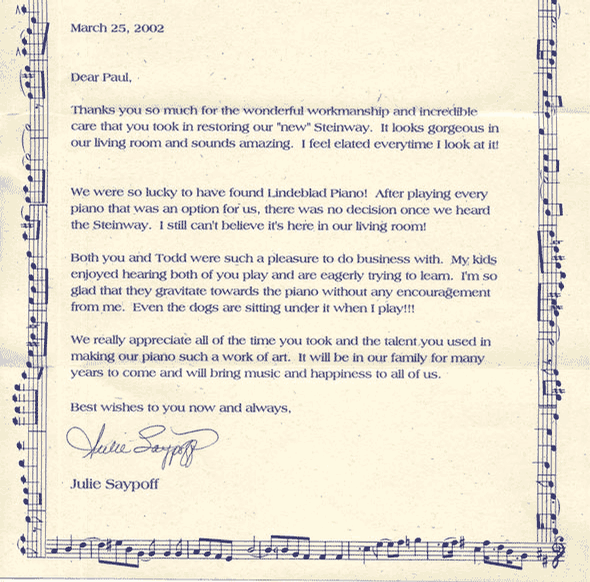 March 25, 2002
Dear Paul,
Thanks you so much for the wonderful workmanship and incredible
care that you took in restoring our "new" Steinway. It looks gorgeous in
our living room and sounds amazing. I feel elated everytime I look at it!
We were so lucky to have found Lindeblad Piano! After playing every
piano that was an option for us, there was no decision once we heard
the Steinway. I still can't believe it's here in our living room!
Both you and Todd were such a pleasure to do business with. My kids
enjoyed hearing both of you play and are eagerly trying to learn. I'm so
glad that they gravitate towards the piano without any encouragement
from me. Even the dogs are sitting under it when I play!!!
We really appreciate all of the time you took and the talent you used in
making our piano such a work of art. It will be in our family for many
years to come and will bring music and happiness to all of us.
Best wishes to you now and always,
Julie Saypoff
Julie Saypoff